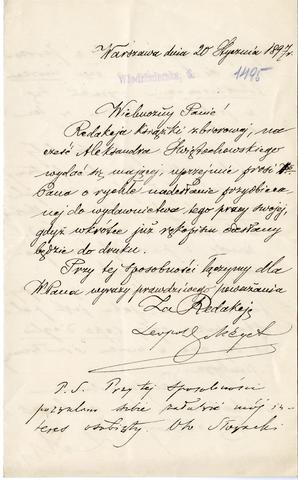 Warszawa dnia 20 Stycznia 1897 r.
Włodzimierska, 8.
1495
Wielmożny Panie!
Redakcja książki zbiorowej, na
cześć Aleksandra Świętochowskiego
wydać się mającej, uprzejmie prosi W
Pana o rychłe nadesłanie przyobieca
nej do wydawnictwa tego pracy swojej,
gdyż wkrótce już rękopism oddany
będzie do druku.
Przy tej sposobności łączymy dla
WPana wyrazy prawdziwego poważania
Za Redakcję
Leopold Méyet
P. S. Przy tej sposobności
pozwalam sobie załatwić mój in
teres osobisty. Oto Słowacki